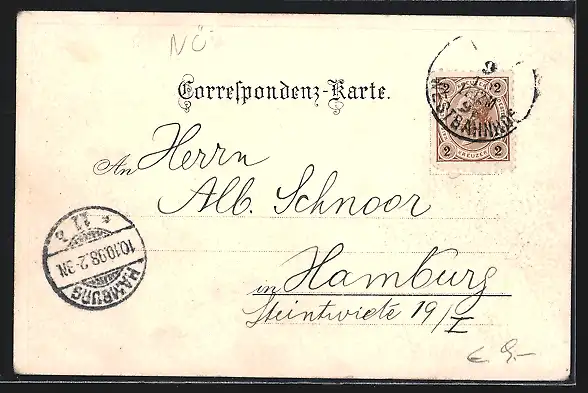 NÖ
Correspondenz-Karte.
2 2
2 KREUZER 2
WESTBAHNHOF
An Herrn
Alb. Schnoor
in Hamburg
Steintwiete 19/I
HAMBURG
10.10.98.2-3N.
* 11 *
€ 9,-